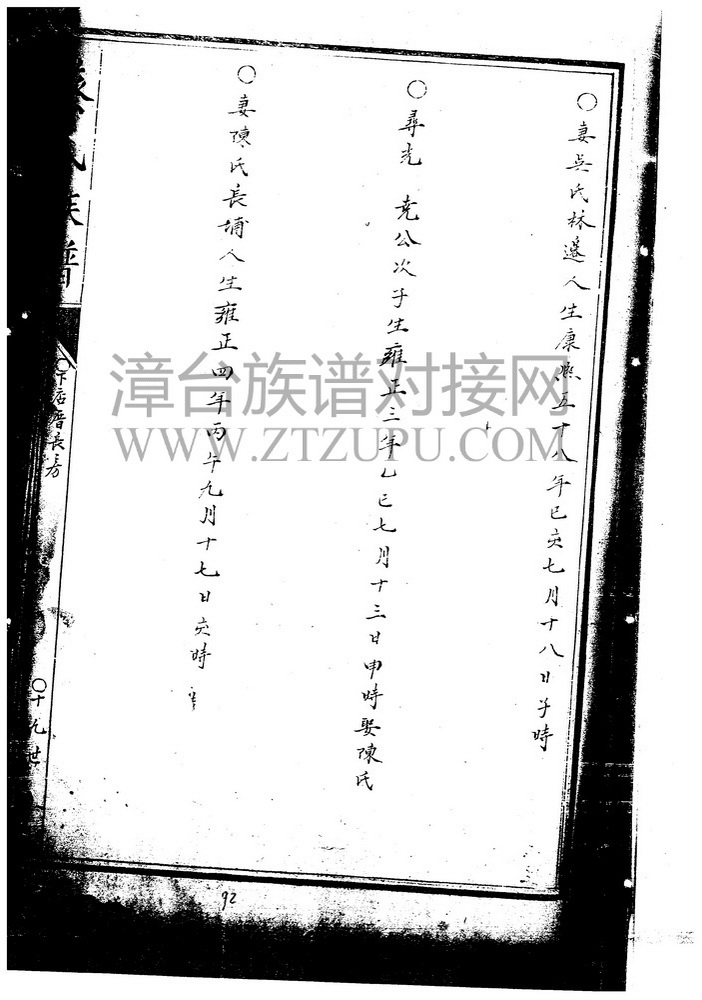 ○妻吳氏林邊人生康熙五十八年己亥七月十八日子時
○尋光 尭公次子生雍正三年乙巳七月十三日申時娶陳氏
○妻陳氏長埔人生雍正四年丙午九月十七日亥時
氏族譜
○下店厝長房
○十九世
92
漳台族谱对接网
WWW.ZTZUPU.COM